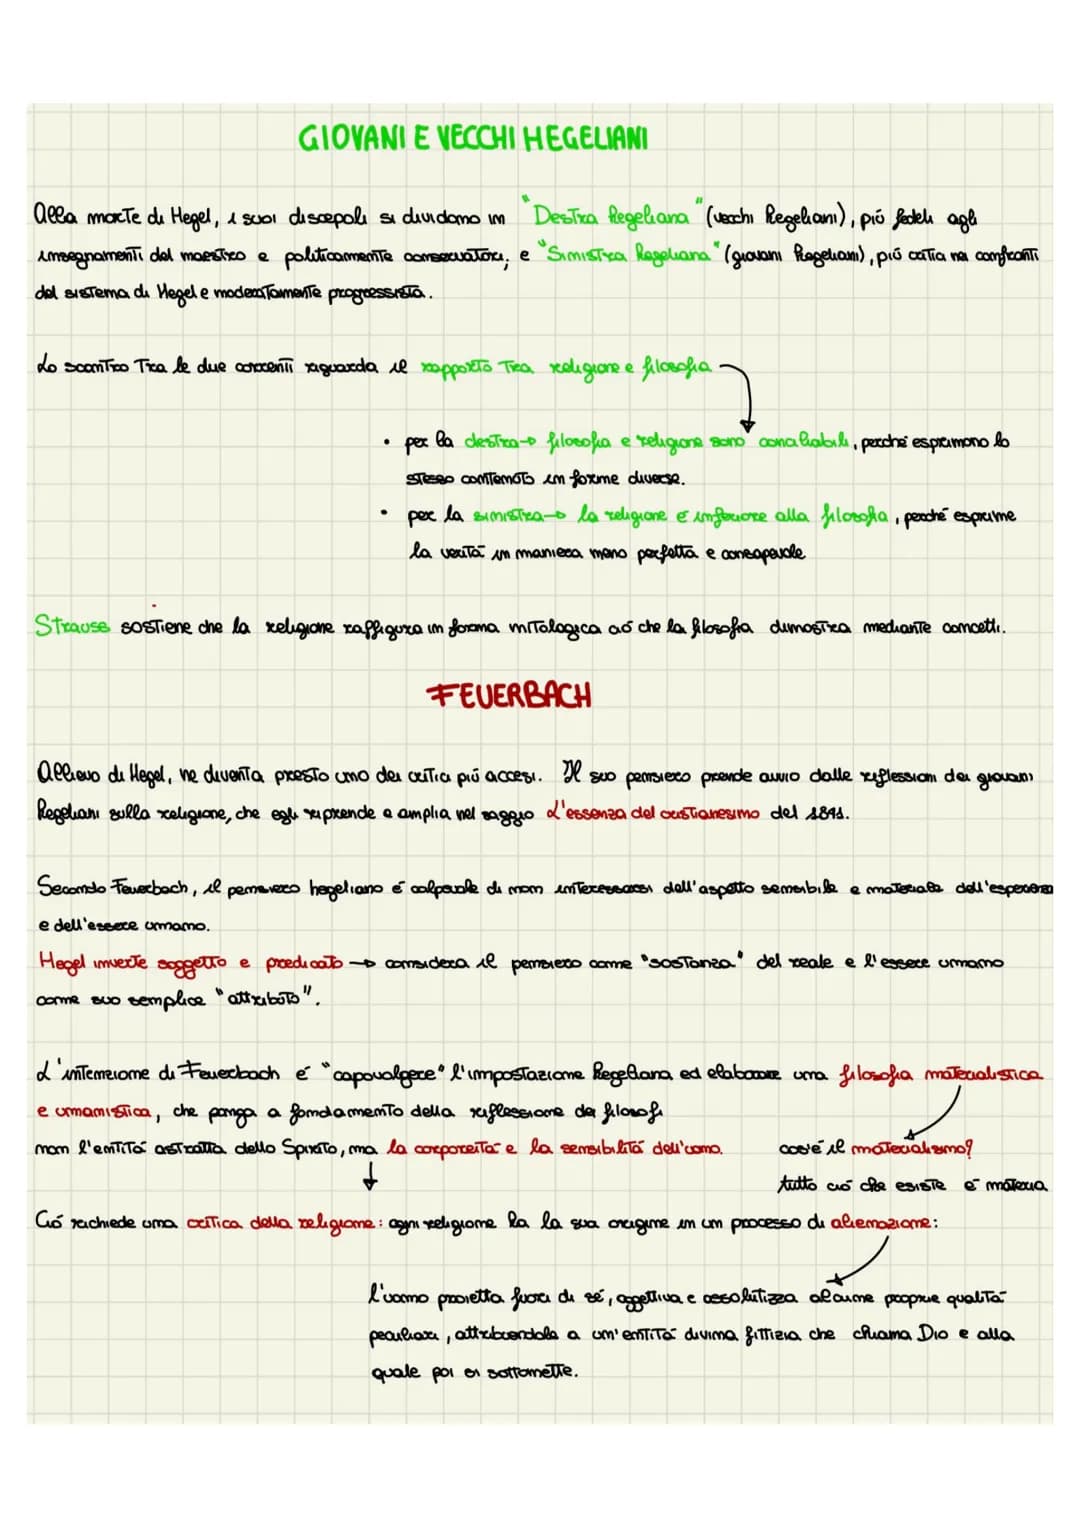 GIOVANI E VECCHI HEGELIANI
Alla morte di Hegel, i suoi discepoli si dividono in "Destra hegeliana" (vecchi hegeliani), più fedeli agli
insegnamenti del maestro e politicamente conservatori; e "Sinistra hegeliana" (giovani hegeliani), più critia nei confronti
del sistema di Hegel e moderatamente progressista.
Lo scontro tra le due correnti riguarda il rapporto tra religione e filosofia
• per la destra→ filosofia e religione sono conciliabili, perché esprimono lo
stesso contenuto in forme diverse.
• per la sinistra→ la religione é inferiore alla filosofia, perché esprime
la verità in maniera meno perfetta e consapevole
Strauss sostiene che la religione raffigura in forma mitologica ció che la filosofia dimostra mediante concetti.
FEUERBACH
Allievo di Hegel, ne diventa presto uno dei critici più accesi. Il suo pensiero prende avvio dalle riflessioni dei giovani
hegeliani sulla religione, che egli riprende e amplia nel saggio L'essenza del cristianesimo del 1841.
Secondo Feuerbach, il pensiero hegeliano é colpevole di non interessarsi dell'aspetto sensibile e materiale dell'esperienza
e dell'essere umano.
Hegel inverte soggetto e predicato → considera il pensiero come "sostanza" del reale e l'essere umano
come suo semplice "attributo".
L'intenzione di Feuerbach é "capovolgere" l'impostazione hegeliana ed elaborare una filosofia materialistica
e umanistica, che ponga a fondamento della riflessione dei filosofi
non l'entità astratta dello Spirito, ma la corporeità e la sensibilità dell'uomo.
cos'é il materialismo?
tutto ció che esiste é materia
Ció richiede una critica della religione: ogni religione ha la sua origine in un processo di alienazione:
l'uomo proietta fuori di sé, oggettiva e assolutizza alcune proprie qualità
peculiari, attribuendole a un'entità divina fittizia che chiama Dio e alla
quale poi si sottomette.